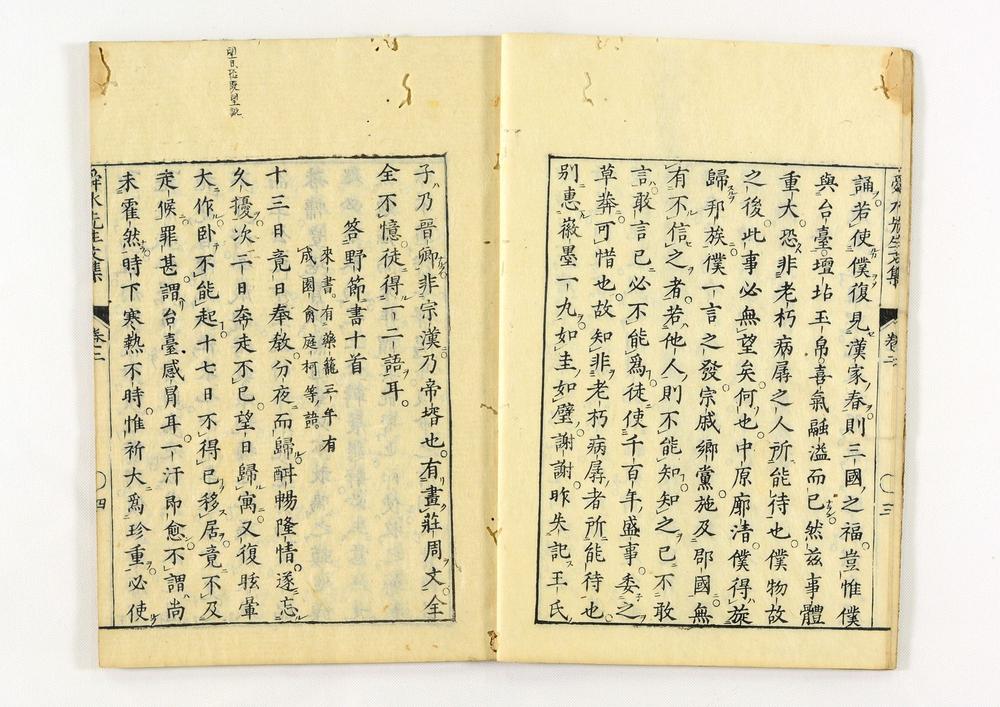 舜水先生文集
卷二
三
誦若使僕復見漢家春則三國之福豈惟僕
與台臺壇坫玉帛喜氣融溢而已然茲事體
重大恐非老朽病孱之人所能待也僕物故
之後此事必無望矣何也中原廓清僕得旋
歸邦族僕一言之發宗戚鄉黨施及郡國無
有不信之者若他人則不能知知之已不敢
言敢言已必不能爲徒使千百年盛事委之
草莽可惜也故知非老朽病孱者所能待也
別惠徽墨一丸如圭如璧謝謝昨朱記王氏
子乃晉卿非宗漢乃帝壻也有畫莊周文全
全不憶徒得一二語耳
答野節書十首
來書有藥籠三年有
成園禽庭柯等語
十三日竟日奉敎分夜而歸酣暢隆情遂忘
久擾次二日奔走不已望日歸寓又復眩暈
大作臥不能起十七日不得已移居竟不及
走候罪甚謂台臺感冐耳一汗即愈不謂尚
未霍然時下寒熱不時惟祈大爲珍重必使
舜水先生文集
卷二
四